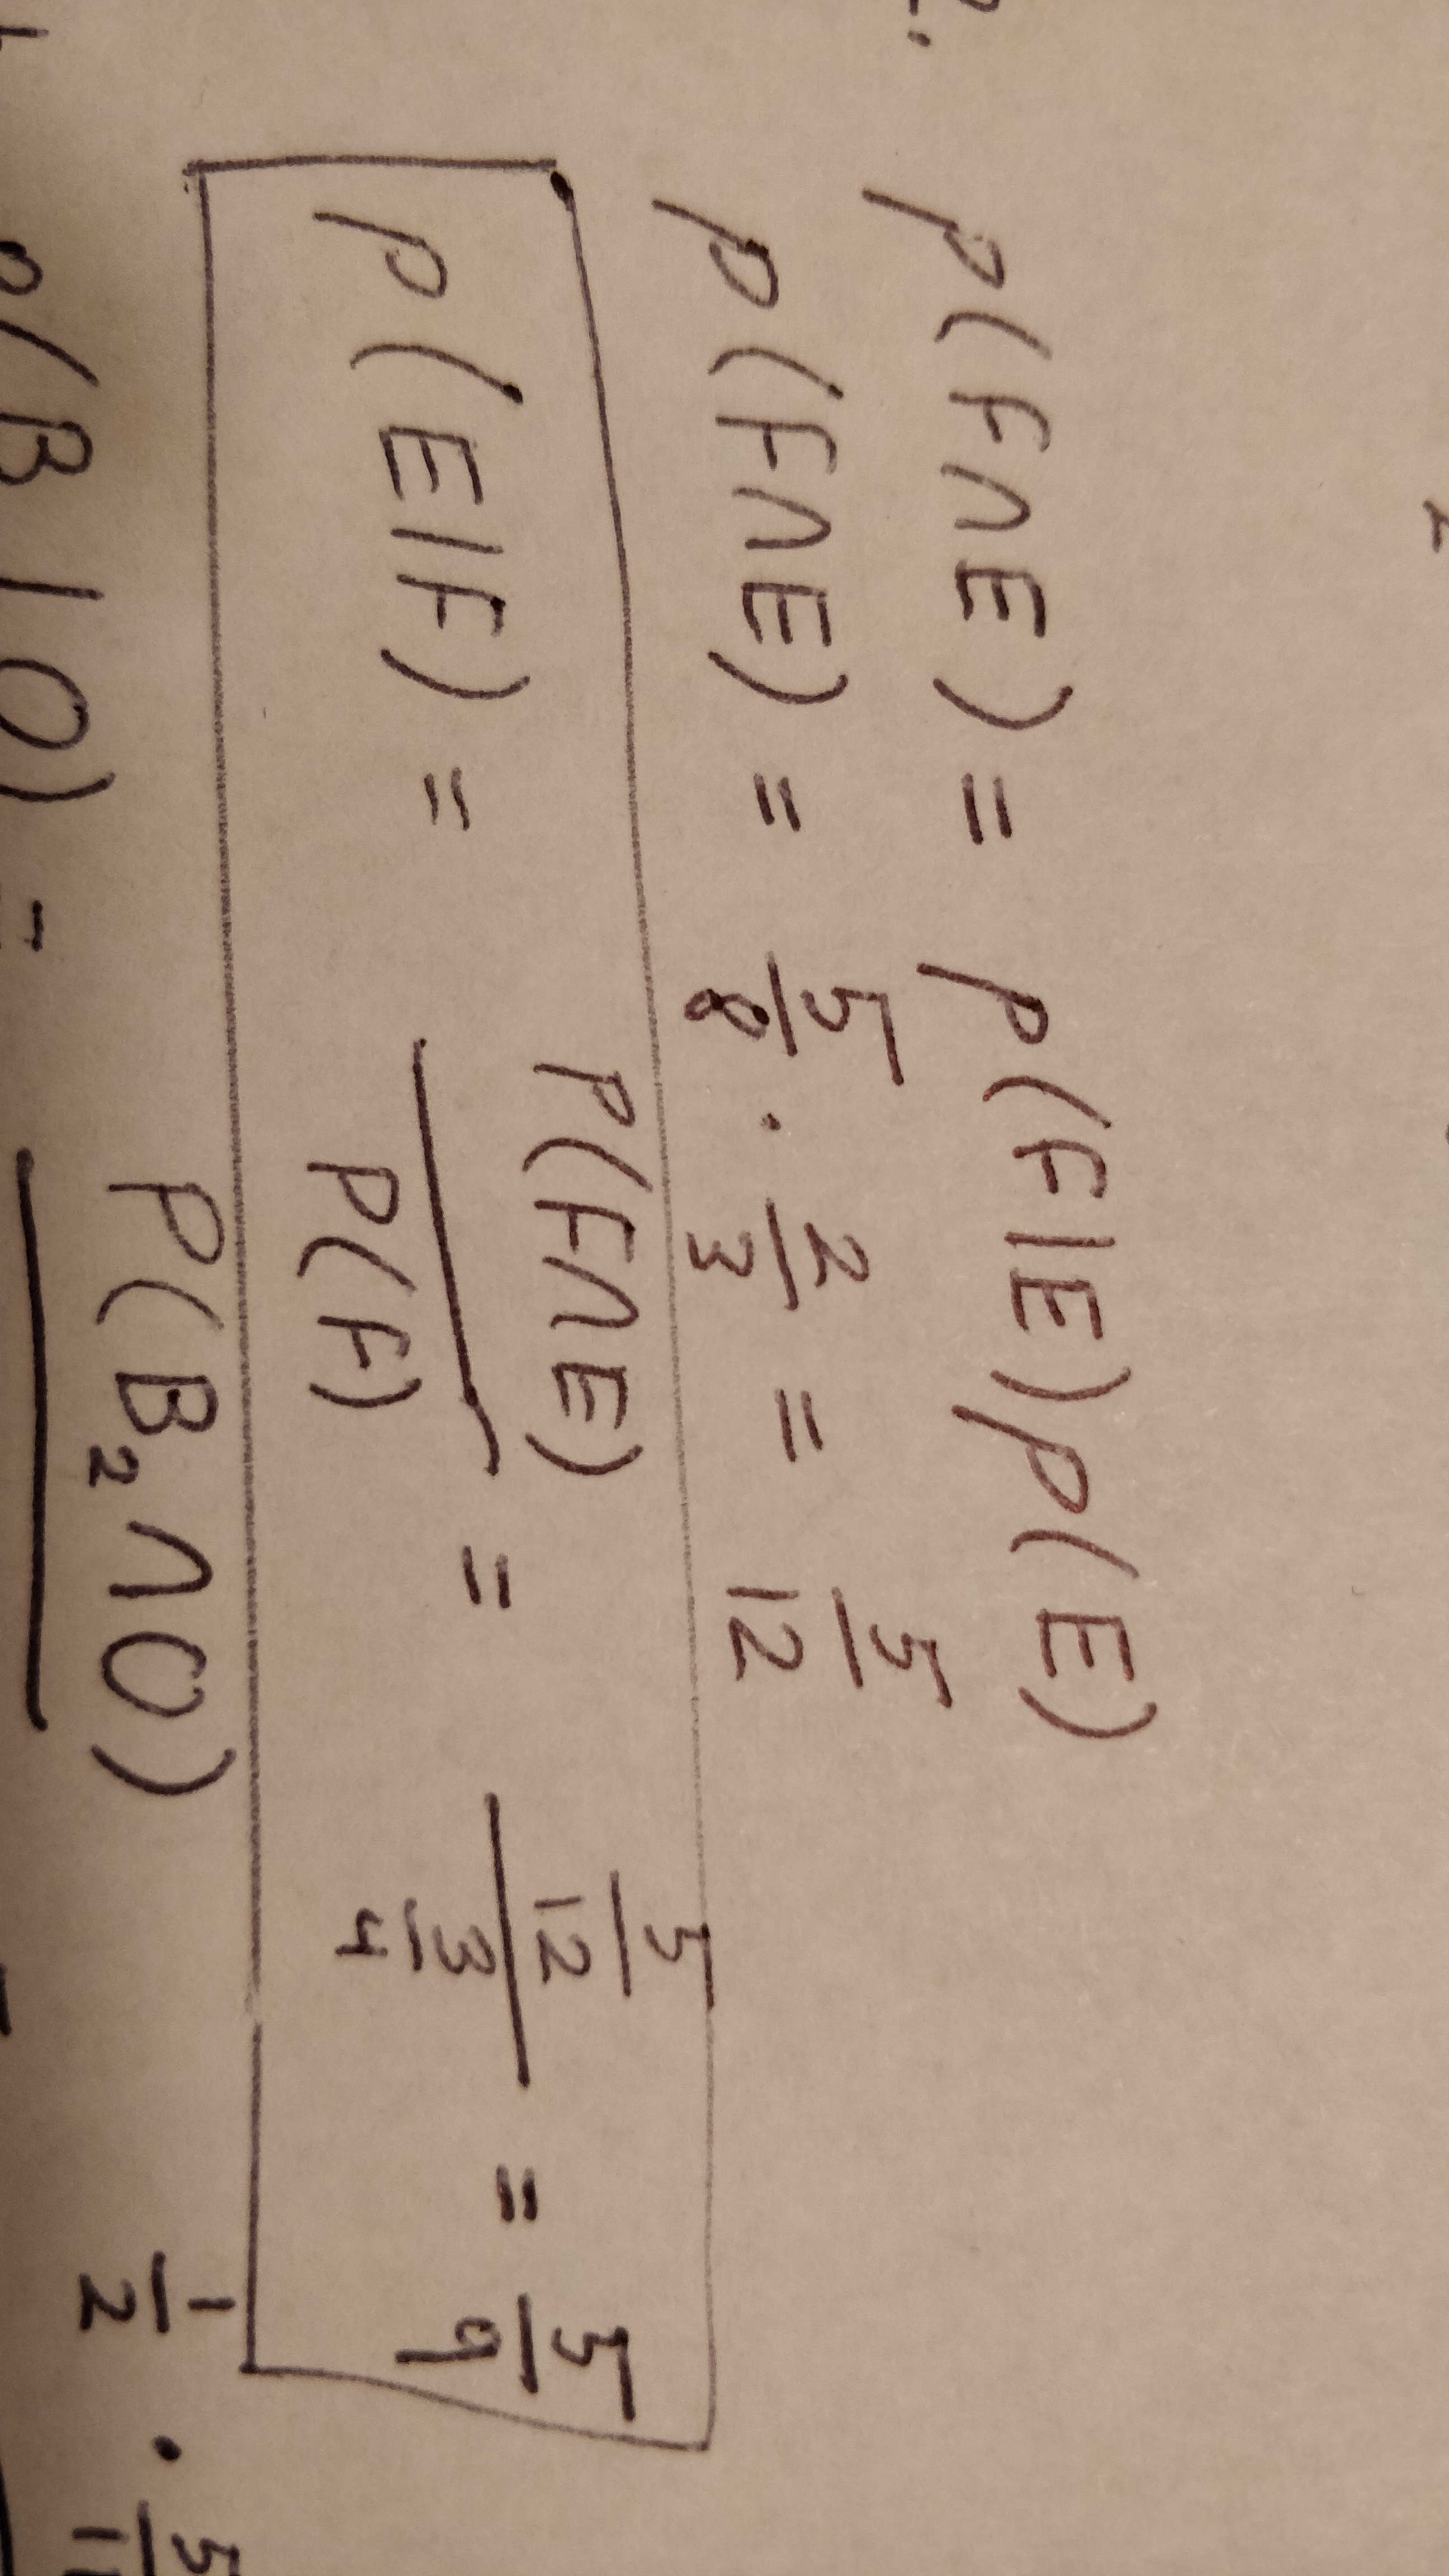 2.
P(F∩E) = P(F|E)P(E)
P(F∩E) = 5/8 · 2/3 = 5/12
P(E|F) = P(F∩E)/P(F) = (5/12)/(3/4) = 5/9
P(B | O) = P(B₂∩O) 1/2 · 5/11